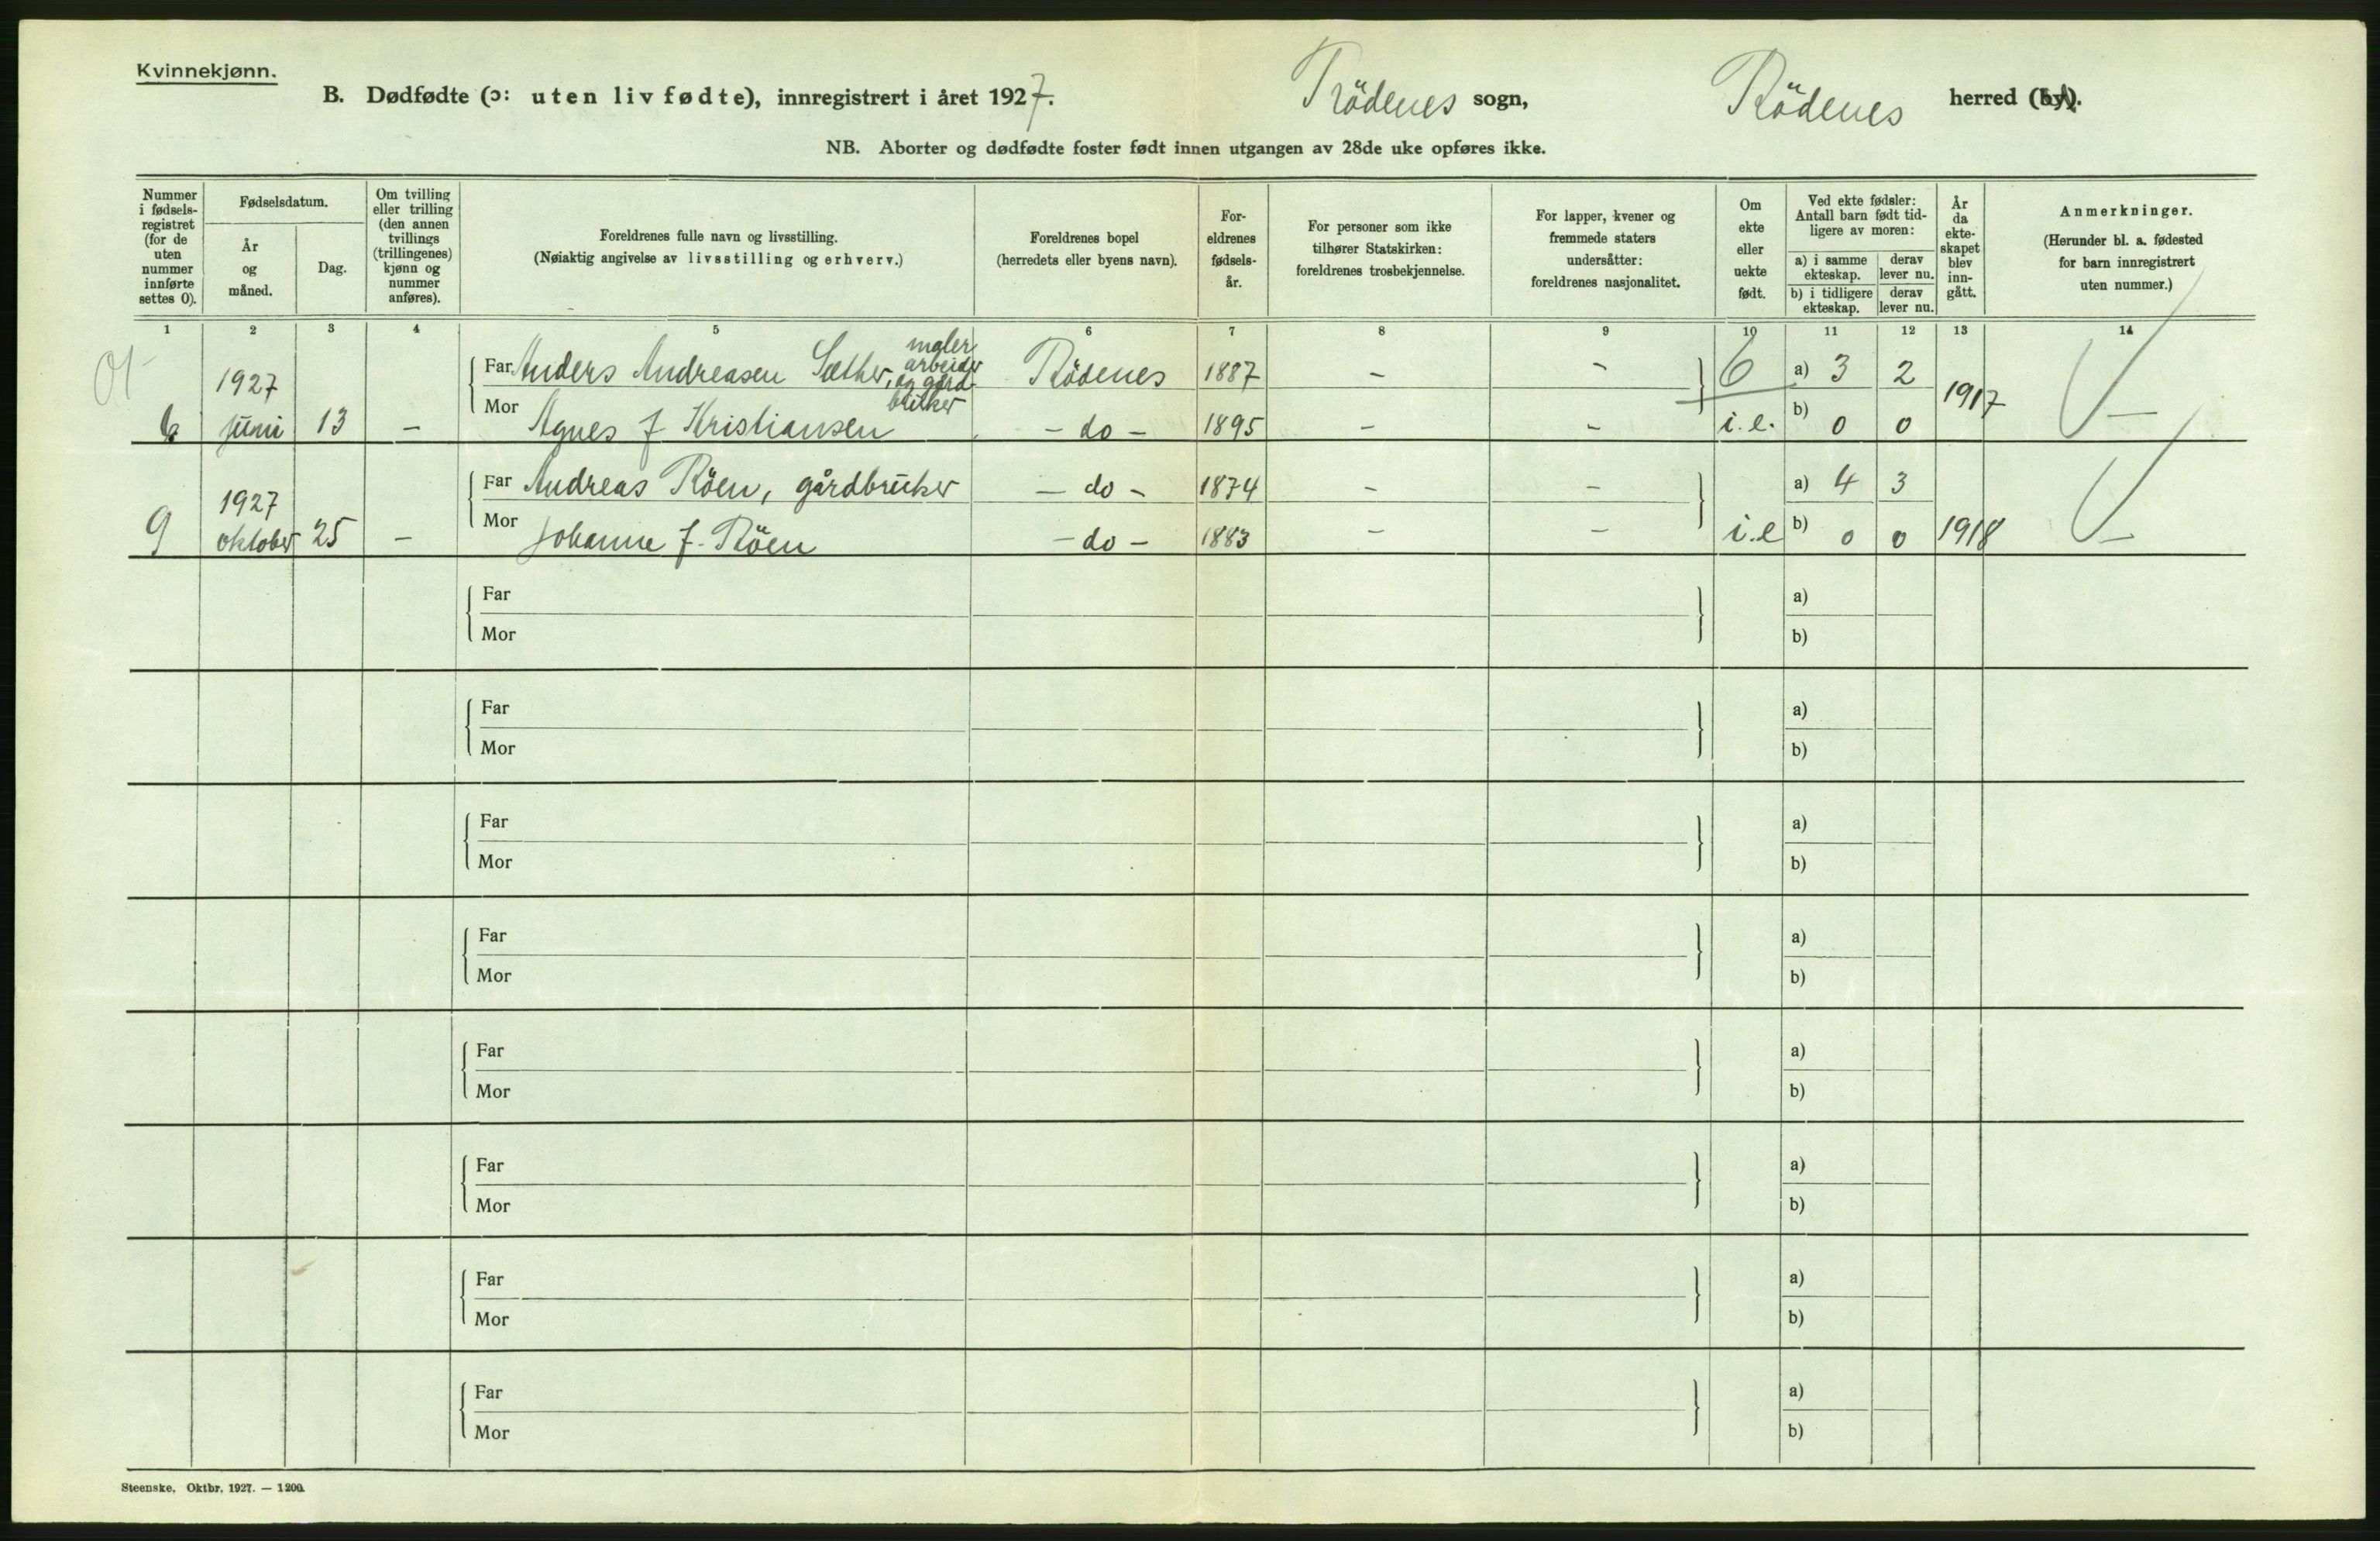 Kvinnekjønn.
B. Dødfødte (ɔ: uten liv fødte), innregistrert i året 1927. Rödenes sogn, Rödenes herred (by).
NB. Aborter og dødfødte foster født innen utgangen av 28de uke opføres ikke.
Nummer i fødselsregistret (for de uten nummer innførte settes 0).
Fødselsdatum.
År og måned.
Dag.
Om tvilling eller trilling (den annen tvillings (trillingenes) kjønn og nummer anføres).
Foreldrenes fulle navn og livsstilling.
(Nøiaktig angivelse av livsstilling og erhverv.)
Foreldrenes bopel
(herredets eller byens navn).
Foreldrenes fødselsår.
For personer som ikke tilhører Statskirken: foreldrenes trosbekjennelse.
For lapper, kvener og fremmede staters undersåtter: foreldrenes nasjonalitet.
Om ekte eller uekte født.
Ved ekte fødsler: Antall barn født tidligere av moren:
a) i samme ekteskap. derav lever nu.
b) i tidligere ekteskap. derav lever nu.
År da ekteskapet blev inngått.
Anmerkninger.
(Herunder bl. a. fødested for barn innregistrert uten nummer.)
1 2 3 4 5 6 7 8 9 10 11 12 13 14
6 1927 juni 13 –
Far Anders Andreasen Sæther, maler, arbeider og gårdbruker Rödenes 1887 – – 6 a) 3 2 1917
Mor Agnes f Kristiansen – do – 1895 – – i.e. b) 0 0 –
9 1927 oktober 25 –
Far Andreas Röen, gårdbruker – do – 1874 – – a) 4 3
Mor Johanne f. Röen – do – 1883 – – i.e b) 0 0 1918 –
Far a)
Mor b)
Far a)
Mor b)
Far a)
Mor b)
Far a)
Mor b)
Far a)
Mor b)
Far a)
Mor b)
Far a)
Mor b)
Far a)
Mor b)
Steenske. Oktbr. 1927. — 1200.